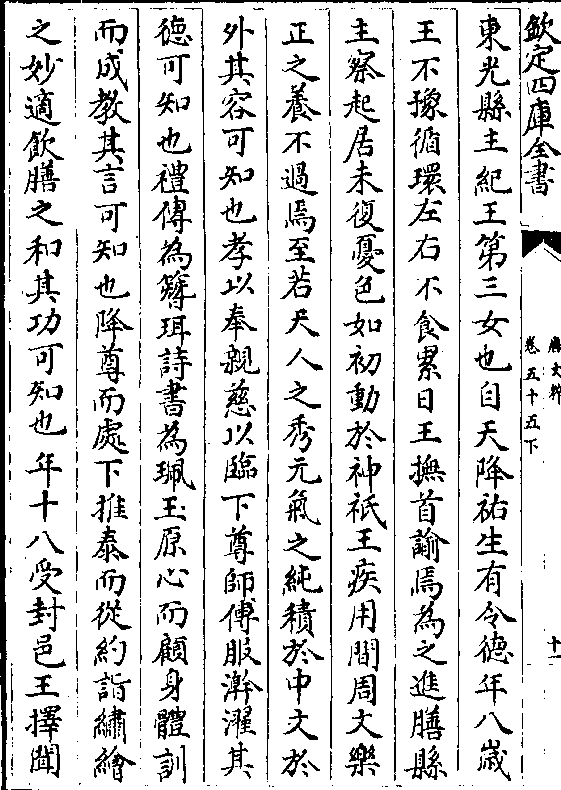 欽定四庫全書
唐文粹
卷五十五下
十一
東光縣主紀王第三女也自天降祐生有令德年八嵗
王不豫循環左右不食累日王撫首諭焉為之進膳縣
主察起居未復憂色如初動於神祇王疾用間周文樂
正之養不過焉至若天人之秀元氣之純積於中文於
外其容可知也孝以奉親慈以臨下尊師傅服澣濯其
德可知也禮傳為簿珥詩書為珮玉原心而顧身體訓
而成教其言可知也降尊而處下推泰而從約詣繡繪
之妙適飲膳之和其功可知也年十八受封邑王擇聞